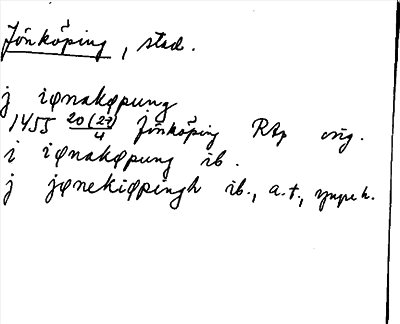 Jönköping, stad.
j iønakøpung
1455 20(27)/4 Jönköping RAp orig.
i iønakøpung ib.
j jønekiøpingh ib., a.t.,